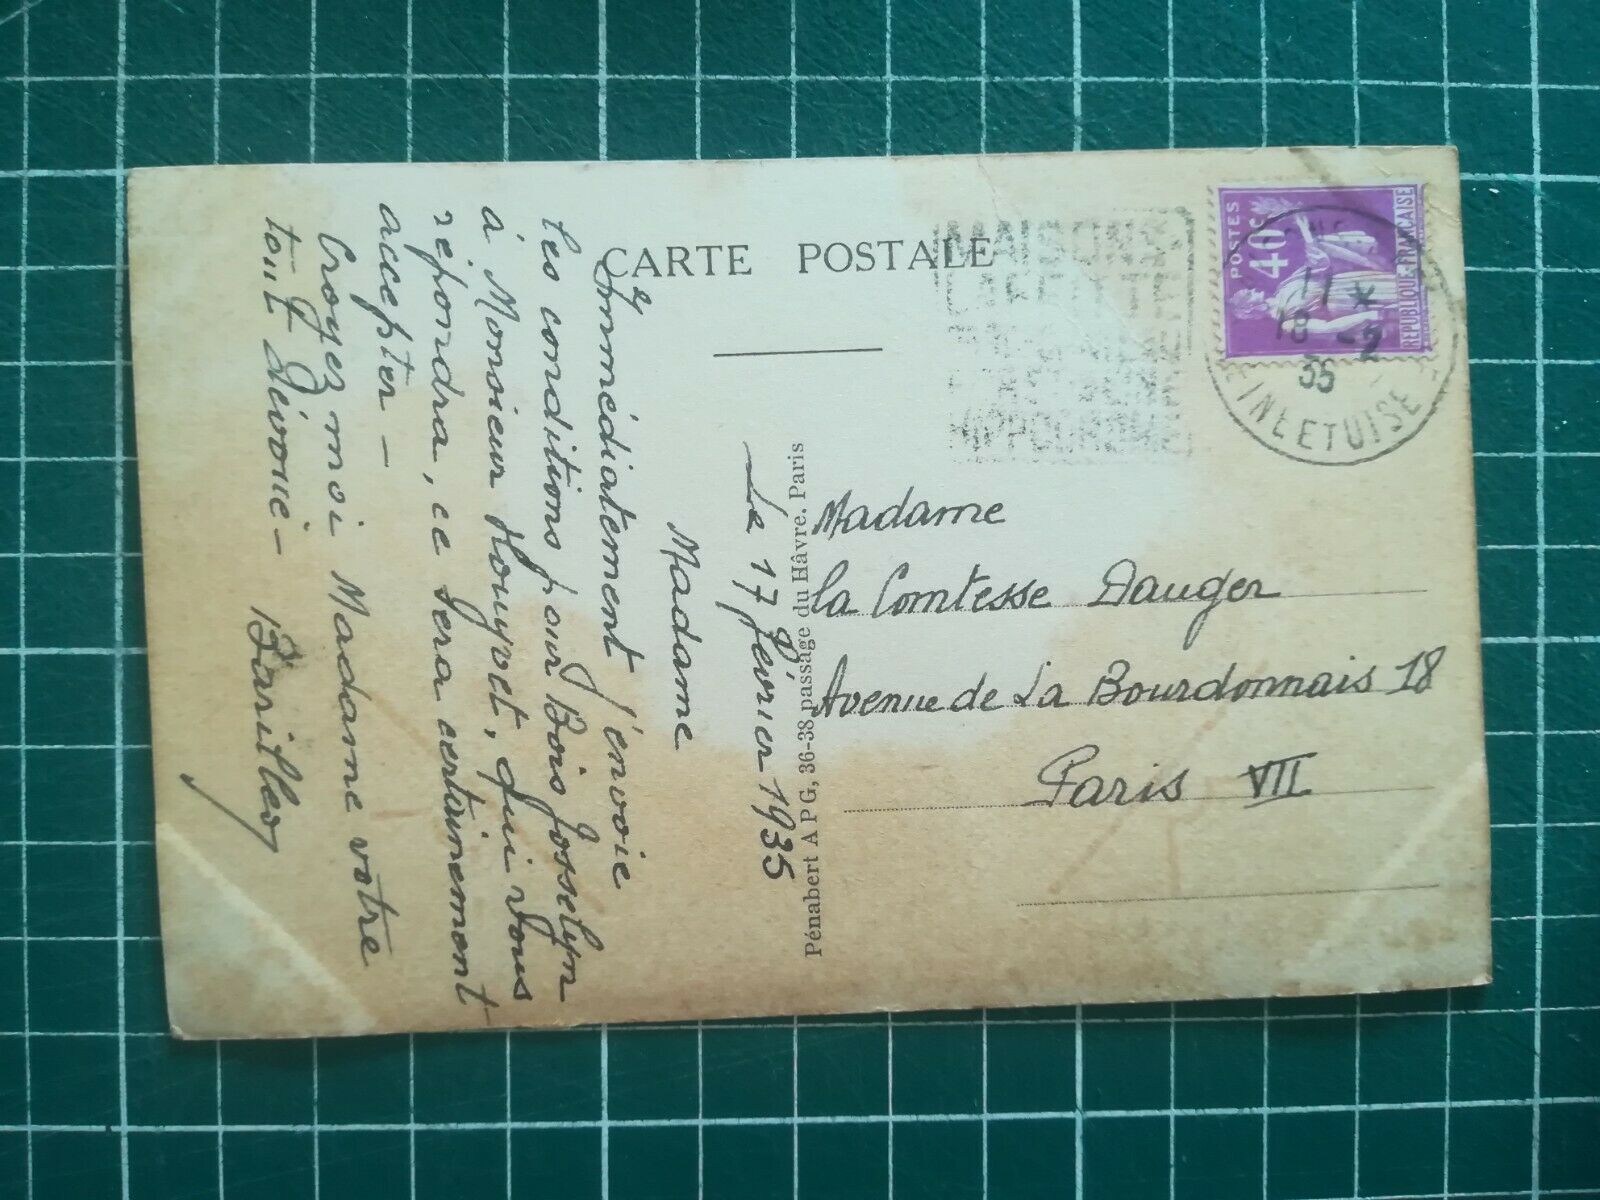 CARTE POSTALE
MAISONS
POSTES
40c
REPUBLIQUE FRANÇAISE
11 *
18 -2
35
SEINE ET OISE
Pénabert A P G, 36-38 passage du Hâvre. Paris
Le 17 Février 1935
Madame
Immédiatement j'envoie
les conditions pour Bois Josselyn
à Monsieur Houyvet, qui vous
répondra, ce sera certainement
accepter –
Croyez moi Madame votre
tout dévoué –
Madame
la Comtesse Dauger
Avenue de La Bourdonnais 18
Paris VII